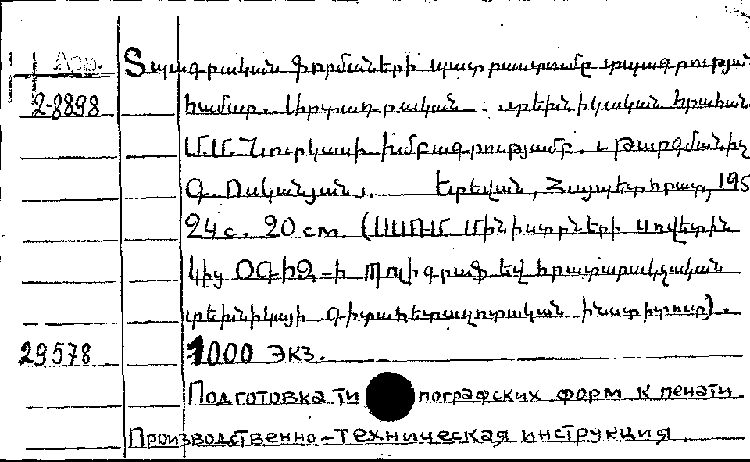 Տպագրական ֆորմաների պատրաստումը տպագրության
2-8898 համար. Արտադրական - տեխնիկական հրահան
Մ.Մ. Նուրկասի խմբագրությամբ. Թարգմանիչ
Գ. Ոսկանյան. Երևան, Հայպետհրատ, 195
24 с. 20 cm. (ՍՍՌՄ Մինիստրների Սովետին
կից ՕԳԻԶ-ի Պոլիգրաֆ եվ հրատարակչական
տեխնիկայի գիտահետազոտական ինստիտուտ).
29578 1000 экз.
Подготовка типографских форм к печати
Производственно-техническая инструкция